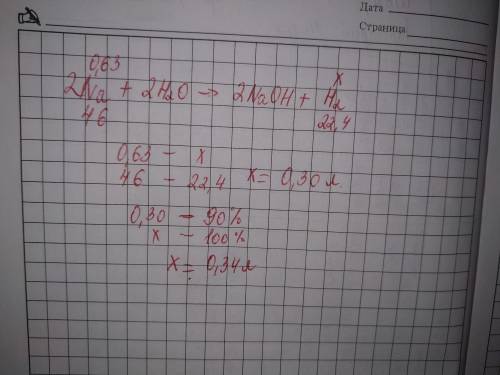 Дата
Страница
0,63 x
2Na + 2H2O → 2NaOH + H2
46 22,4
0,63 - x
46 - 22,4 x = 0,30 л
0,30 - 90%
x - 100%
x = 0,34 л